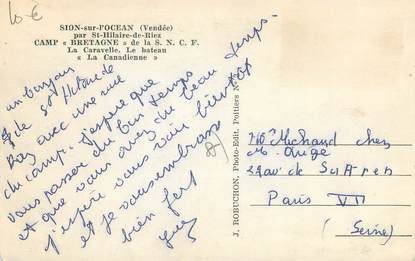 10 €
SION-sur-l'OCEAN (Vendée)
par St-Hilaire-de-Riez
CAMP « BRETAGNE » de la S. N. C. F.
La Caravelle. Le bateau
« La Canadienne »
un bonjour
de St Hilaire de
Riez avec une vue
du camp. J'espère que
vous passer du bon temps
et que vous avez du beau temps-
J'espère vous voir bientot
et je vous embrasse
bien fort
J. ROBUCHON, Photo-Edit. Poitiers N°
Michaud chez
Ange
av de
Paris VII
(Seine)